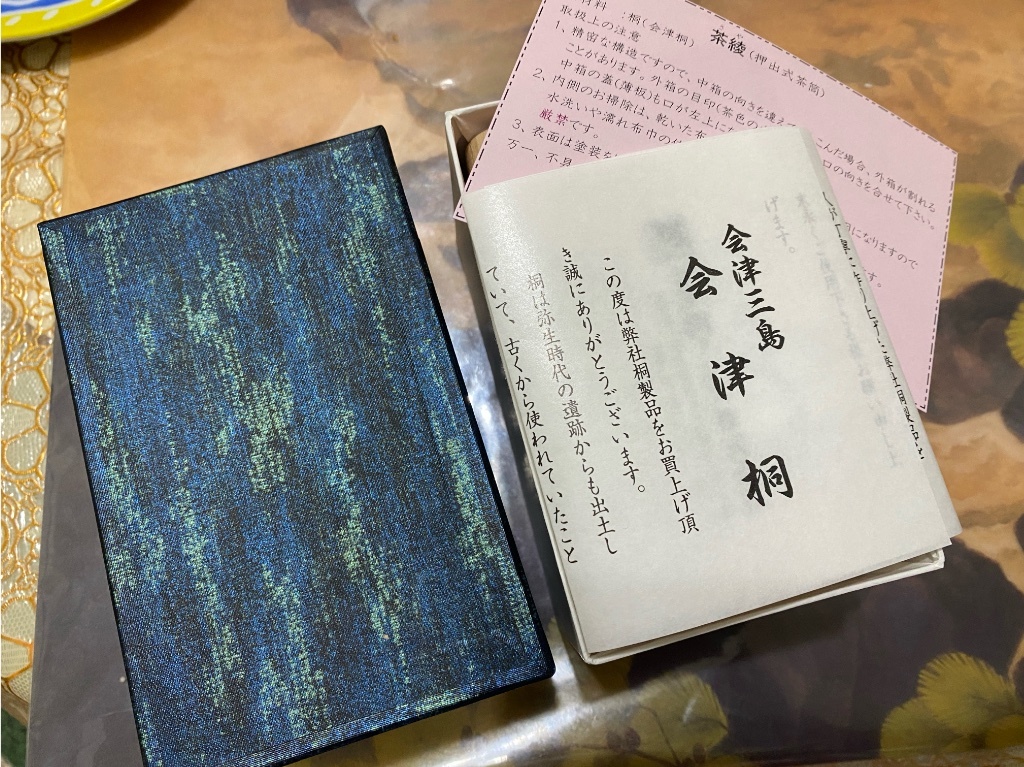 会津三島
会津桐
この度は弊社桐製品をお買上げ頂
き誠にありがとうございます。
桐は弥生時代の遺跡からも出土し
ていて、古くから使われていたこと
茶綾(押出式茶筒)
材料 :桐(会津桐)
取扱上の注意
1、精密な構造ですので、中箱の向きを違えて こんだ場合、外箱が割れる
ことがあります。外箱の目印(茶色の 口の向きを合せて下さい。
中箱の蓋(薄板)も口が左上に
2、内側のお掃除は、乾いた布
水洗いや濡れ布巾の になりますので
厳禁です。
3、表面は塗装を す。
万一、不具
げます。